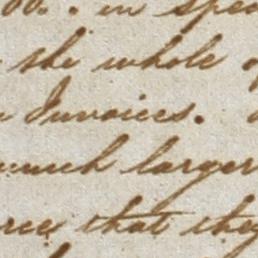 00. . in spec
the whole of
Invoices.
much larger
that they